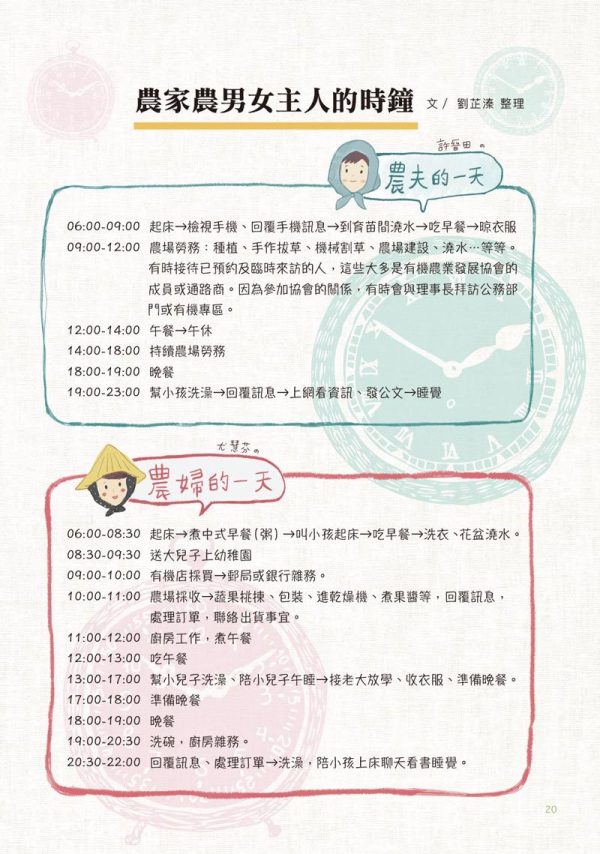 農家農男女主人的時鐘 文/ 劉芷溱 整理
許晉田 の
農夫的一天
06:00-09:00 起床→檢視手機、回覆手機訊息→到育苗間澆水→吃早餐→晾衣服
09:00-12:00 農場勞務：種植、手作拔草、機械割草、農場建設、澆水…等等。
有時接待已預約及臨時來訪的人，這些大多是有機農業發展協會的
成員或通路商。因為參加協會的關係，有時會與理事長拜訪公務部
門或有機專區。
12:00-14:00 午餐→午休
14:00-18:00 持續農場勞務
18:00-19:00 晚餐
19:00-23:00 幫小孩洗澡→回覆訊息→上網看資訊、發公文→睡覺
尤慧芬の
農婦的一天
06:00-08:30 起床→煮中式早餐(粥) →叫小孩起床→吃早餐→洗衣、花盆澆水。
08:30-09:30 送大兒子上幼稚園
09:00-10:00 有機店採買→郵局或銀行雜務。
10:00-11:00 農場採收→蔬果挑揀、包裝、進乾燥機、煮果醬等，回覆訊息，
處理訂單，聯絡出貨事宜。
11:00-12:00 廚房工作，煮午餐
12:00-13:00 吃午餐
13:00-17:00 幫小兒子洗澡、陪小兒子午睡→接老大放學、收衣服、準備晚餐。
17:00-18:00 準備晚餐
18:00-19:00 晚餐
19:00-20:30 洗碗，廚房雜務。
20:30-22:00 回覆訊息、處理訂單→洗澡，陪小孩上床聊天看書睡覺。
20